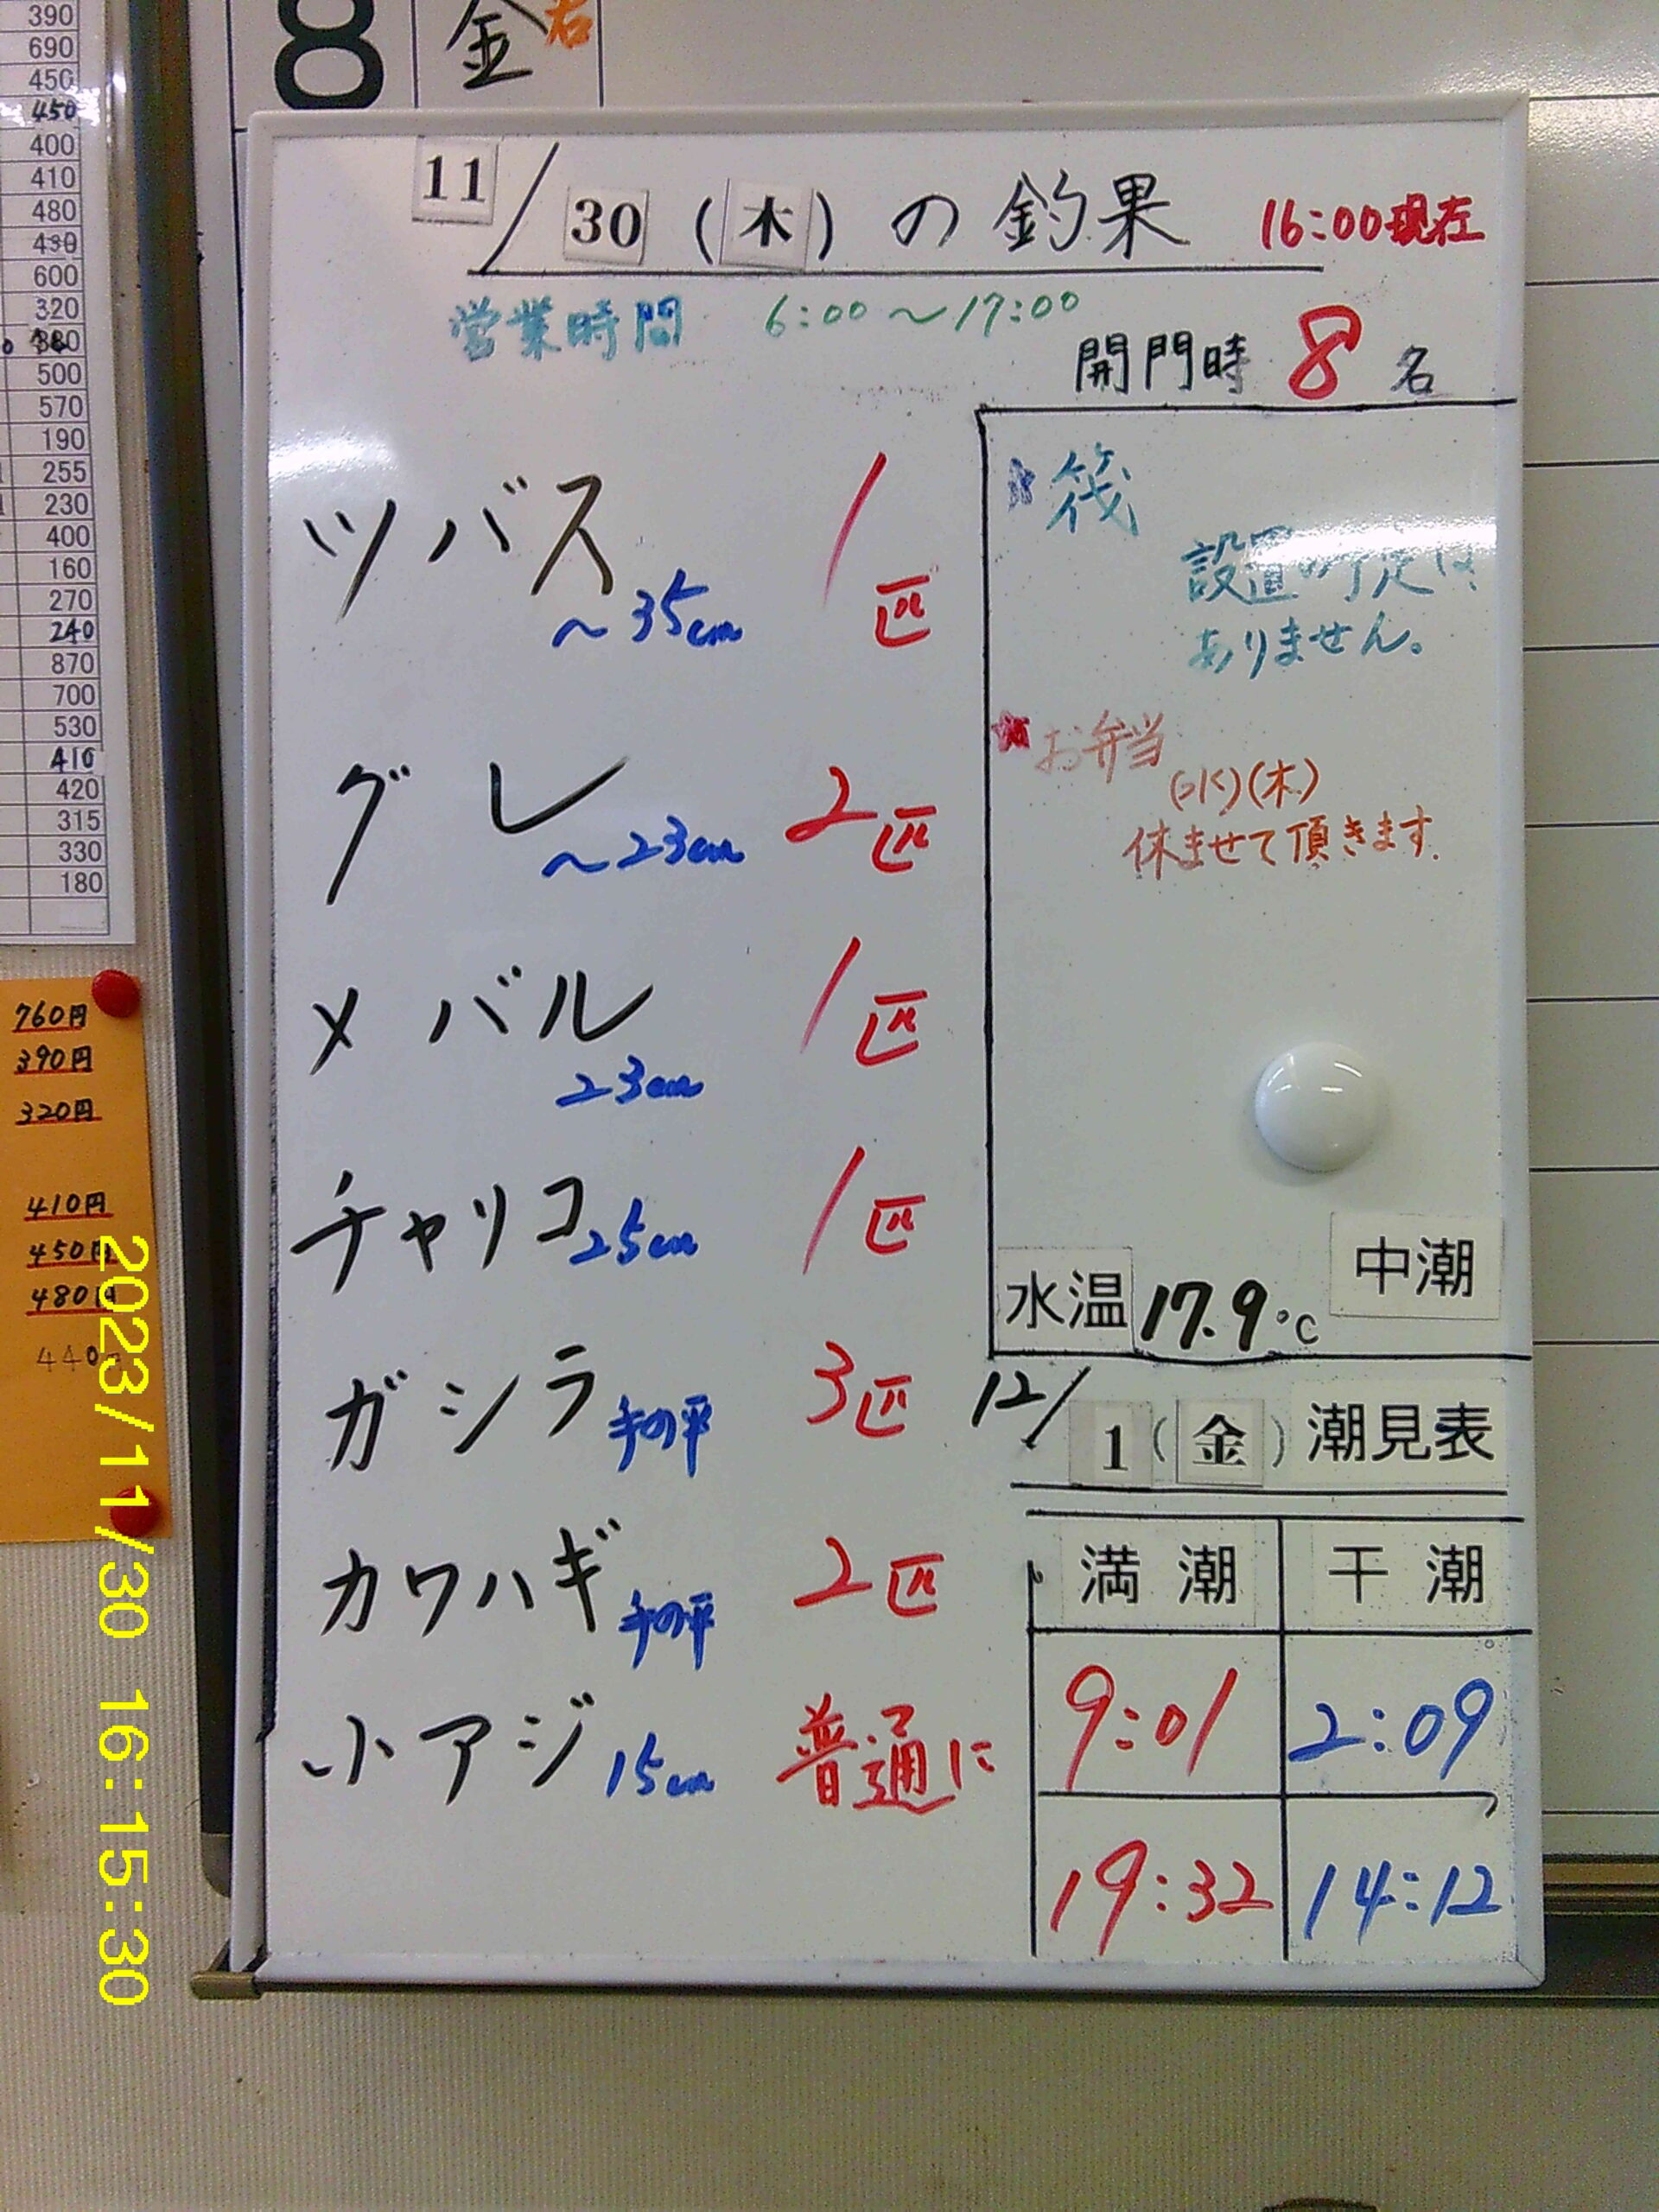 390
690
450
450
400
410
480
430
600
320
500
570
190
255
230
400
160
270
240
870
700
530
410
420
315
330
180
760円
390円
320円
410円
450円
480円
440
8 金
11/30(木)の釣果 16:00現在
営業時間 6:00〜17:00
開門時 8名
ツバス 〜35cm 1匹
グレ 〜23cm 2匹
メバル 23cm 1匹
チャリコ 25cm 1匹
ガシラ 手の平 3匹
カワハギ 手の平 2匹
小アジ 15cm 普通に
★筏
設置の予定は
ありません。
★お弁当
(水)(木)
休ませて頂きます.
水温 17.9℃ 中潮
12/1(金)潮見表
満潮 干潮
9:01 2:09
19:32 14:12
2023/11/30 16:15:30